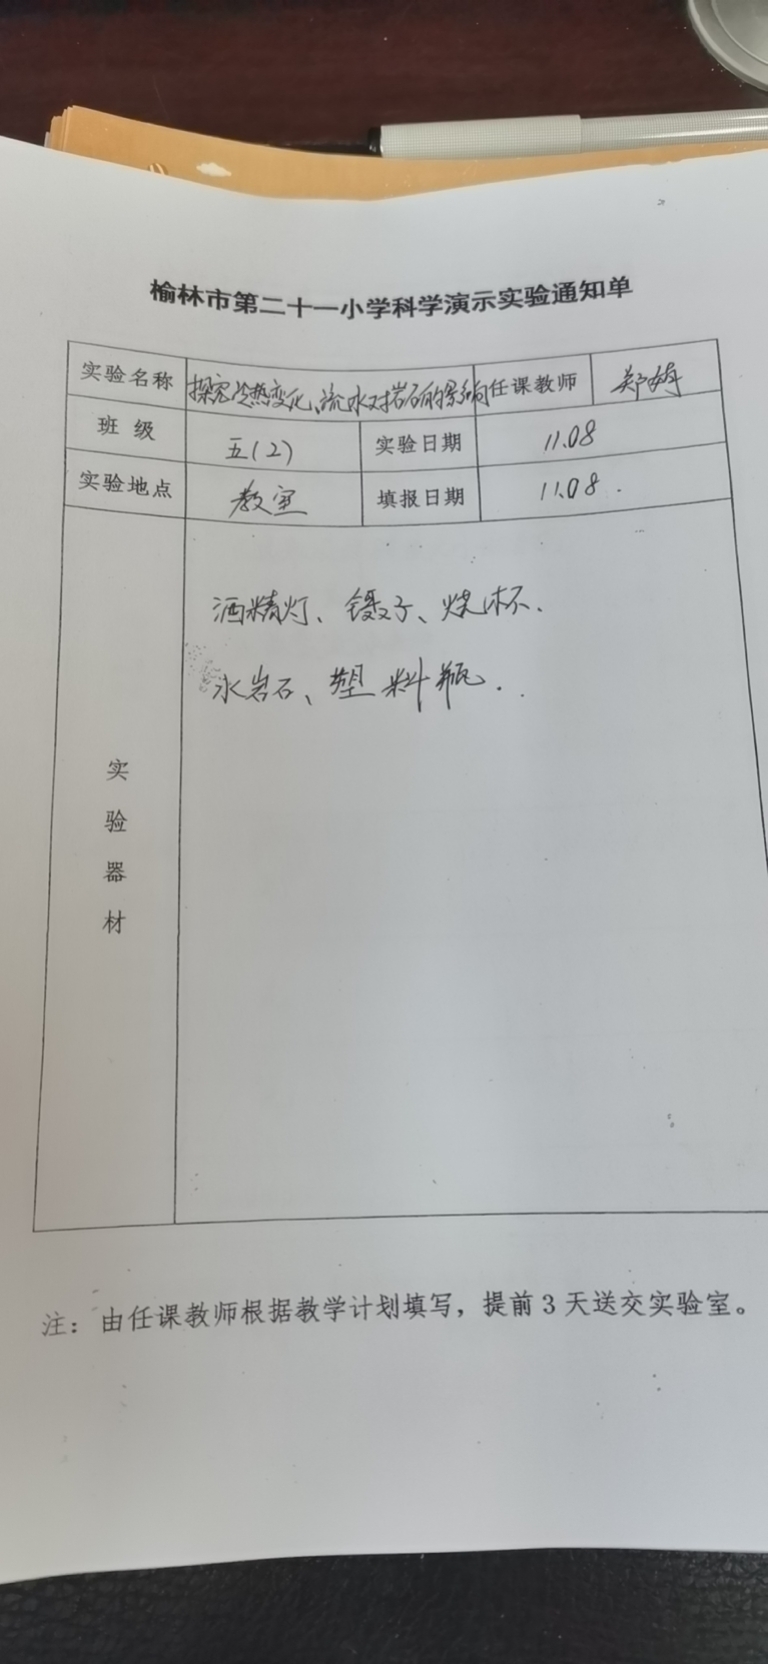 榆林市第二十一小学科学演示实验通知单
实验名称 探究冷热变化、流水对岩石的影响 任课教师 郑娉
班级 五(2) 实验日期 11.08
实验地点 教室 填报日期 11.08.
酒精灯、镊子、烧杯.
水岩石、塑料瓶..
实
验
器
材
注：由任课教师根据教学计划填写，提前3天送交实验室。